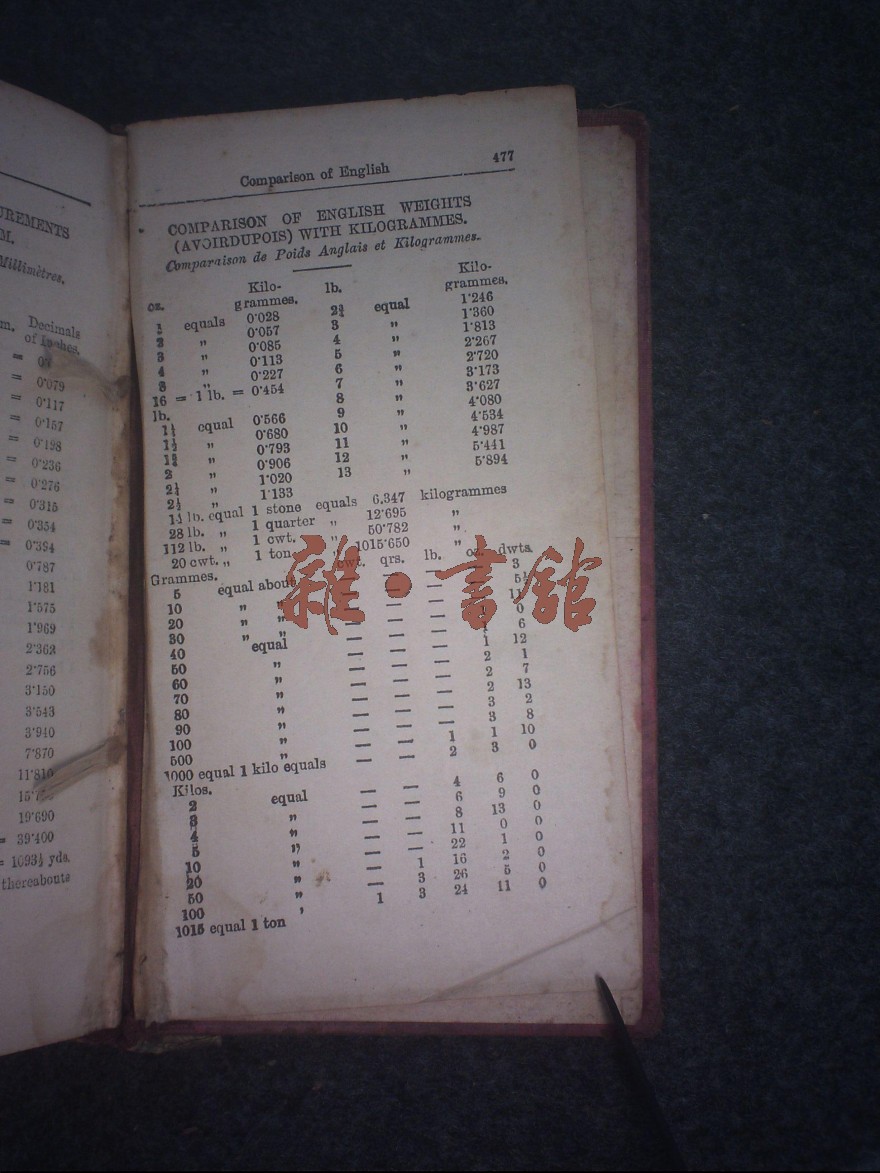 UREMENTS
M.
Millimètres.
m. Decimals
of Inches.
=
= 0·079
= 0·117
= 0·157
= 0·198
= 0·236
= 0·276
= 0·315
= 0·354
= 0·394
0·787
1·181
1·575
1·969
2·362
2·756
3·150
3·543
3·940
7·870
11·810
19·690
= 39·400
= 1093½ yds.
thereabouts
Comparison of English 477
COMPARISON OF ENGLISH WEIGHTS
(AVOIRDUPOIS) WITH KILOGRAMMES.
Comparaison de Poids Anglais et Kilogrammes.
Kilo- Kilo-
oz. grammes. lb. grammes.
1 equals 0·028 2¾ equal 1·246
2 „ 0·057 3 „ 1·360
3 „ 0·085 4 „ 1·813
4 „ 0·113 5 „ 2·267
8 „ 0·227 6 „ 2·720
16 = 1 lb. = 0·454 7 „ 3·173
lb. 8 „ 3·627
1¼ equal 0·566 9 „ 4·080
1½ „ 0·680 10 „ 4·534
1¾ „ 0·793 11 „ 4·987
2 „ 0·906 12 „ 5·441
2¼ „ 1·020 13 „ 5·894
2½ „ 1·133
14 lb. equal 1 stone equals 6.347 kilogrammes
28 lb. „ 1 quarter „ 12·695 „
112 lb. „ 1 cwt. „ 50·782 „
20 cwt. „ 1 ton „ 1015·650 „
Grammes. cwt. qrs. lb. oz. dwts.
5 equal about — — — — 3
10 „ „ — — — — 5½
20 „ „ — — — — 11
30 „ „ — — — 1 0
40 equal — — — 1 6
50 „ — — — 1 12
60 „ — — — 2 1
70 „ — — — 2 7
80 „ — — — 2 13
90 „ — — — 3 2
100 „ — — — 3 8
500 „ — — 1 1 10
1000 equal 1 kilo equals — — 2 3 0
Kilos.
2 equal — — 4 6 0
3 „ — — 6 9 0
4 „ — — 8 13 0
5 „ — — 11 0 0
10 „ — — 22 1 0
20 „ — 1 16 2 0
50 „ — 3 26 5 0
100 „ 1 3 24 11 0
1015 equal 1 ton
雜·書館